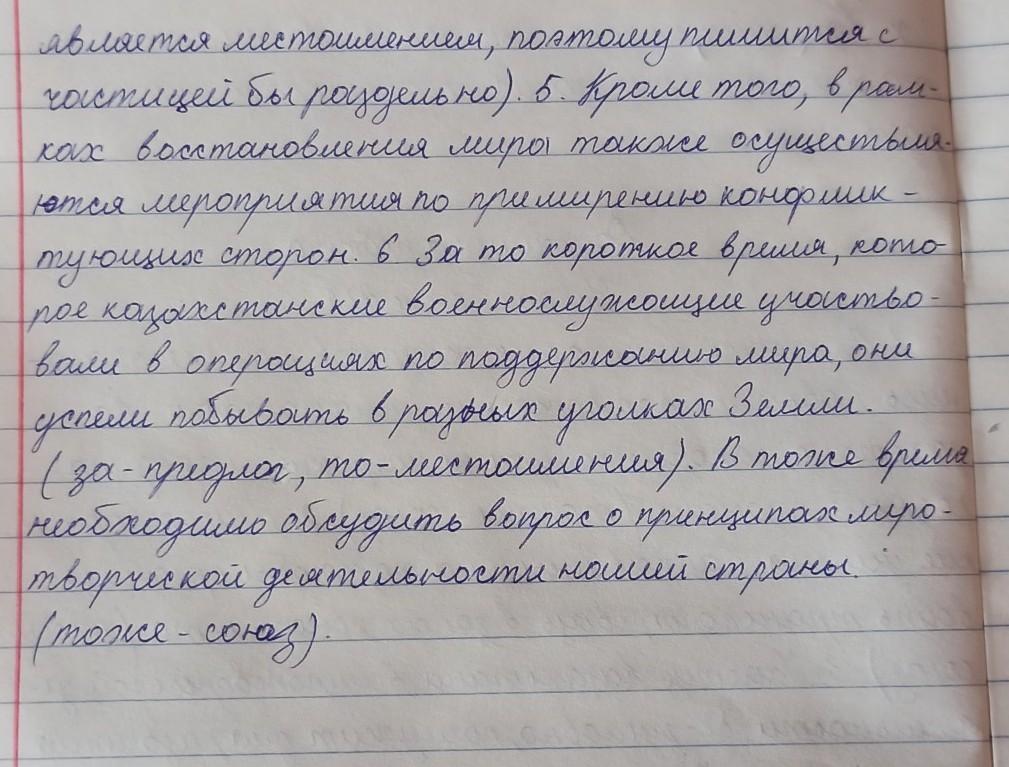 является местоимением, поэтому пишится с
частицей бы раздельно). 5. Кроме того, в рам-
ках восстановления мира также осуществля-
ются мероприятия по примирению конфлик-
тующих сторон. 6 За то короткое время, кото-
рое казахстанские военнослужащие участво-
вали в операциях по поддержанию мира, они
успели побывать в разных уголках Земли.
(за - предлог, то - местоимения). В тоже время
необходимо обсудить вопрос о принципах миро-
творческой деятельности нашей страны.
(тоже - союз).